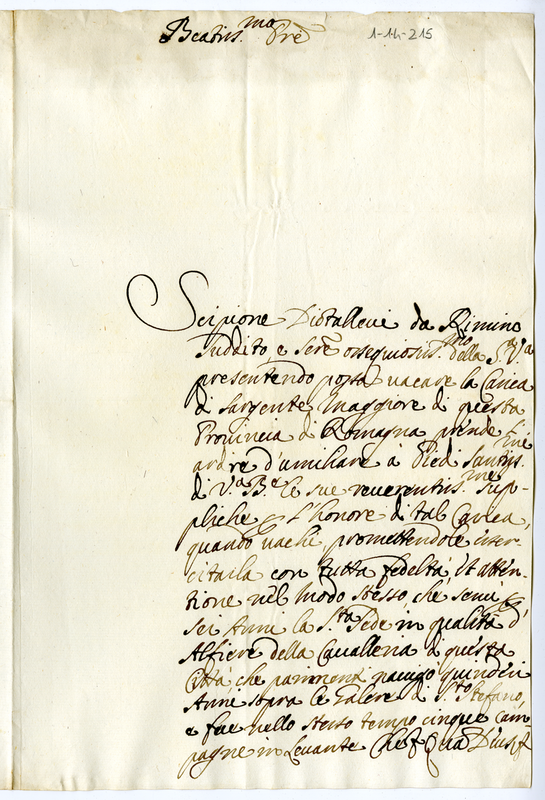 Beatis.mo Pre 1-14-215
Scipione Diotalleui da Rimino
suddito, e seru.e ossequiosis.mo della S.V.a
presentendo possa uacare la Carica
di Sargente Maggiore di questa
Prouincia di Romagna prende
ardire d'umiliare a Piedi Santis.mi
di V.a B.e le sue reuerentis.me sup-
pliche p l'honore di tal Carica,
quando uachi promettendole eser-
citarla con tutta fedeltà, et atten-
tione nel modo stesso, che seruì p
sei Anni la S.ta Sede in qualità d'
Alfiere della Caualleria di questa
Città, che parimenti nauigò quindeci
Anni sopra le Galere di S.to Stefano,
e fece nello stesso tempo cinque Cam
pagne in Leuante Che